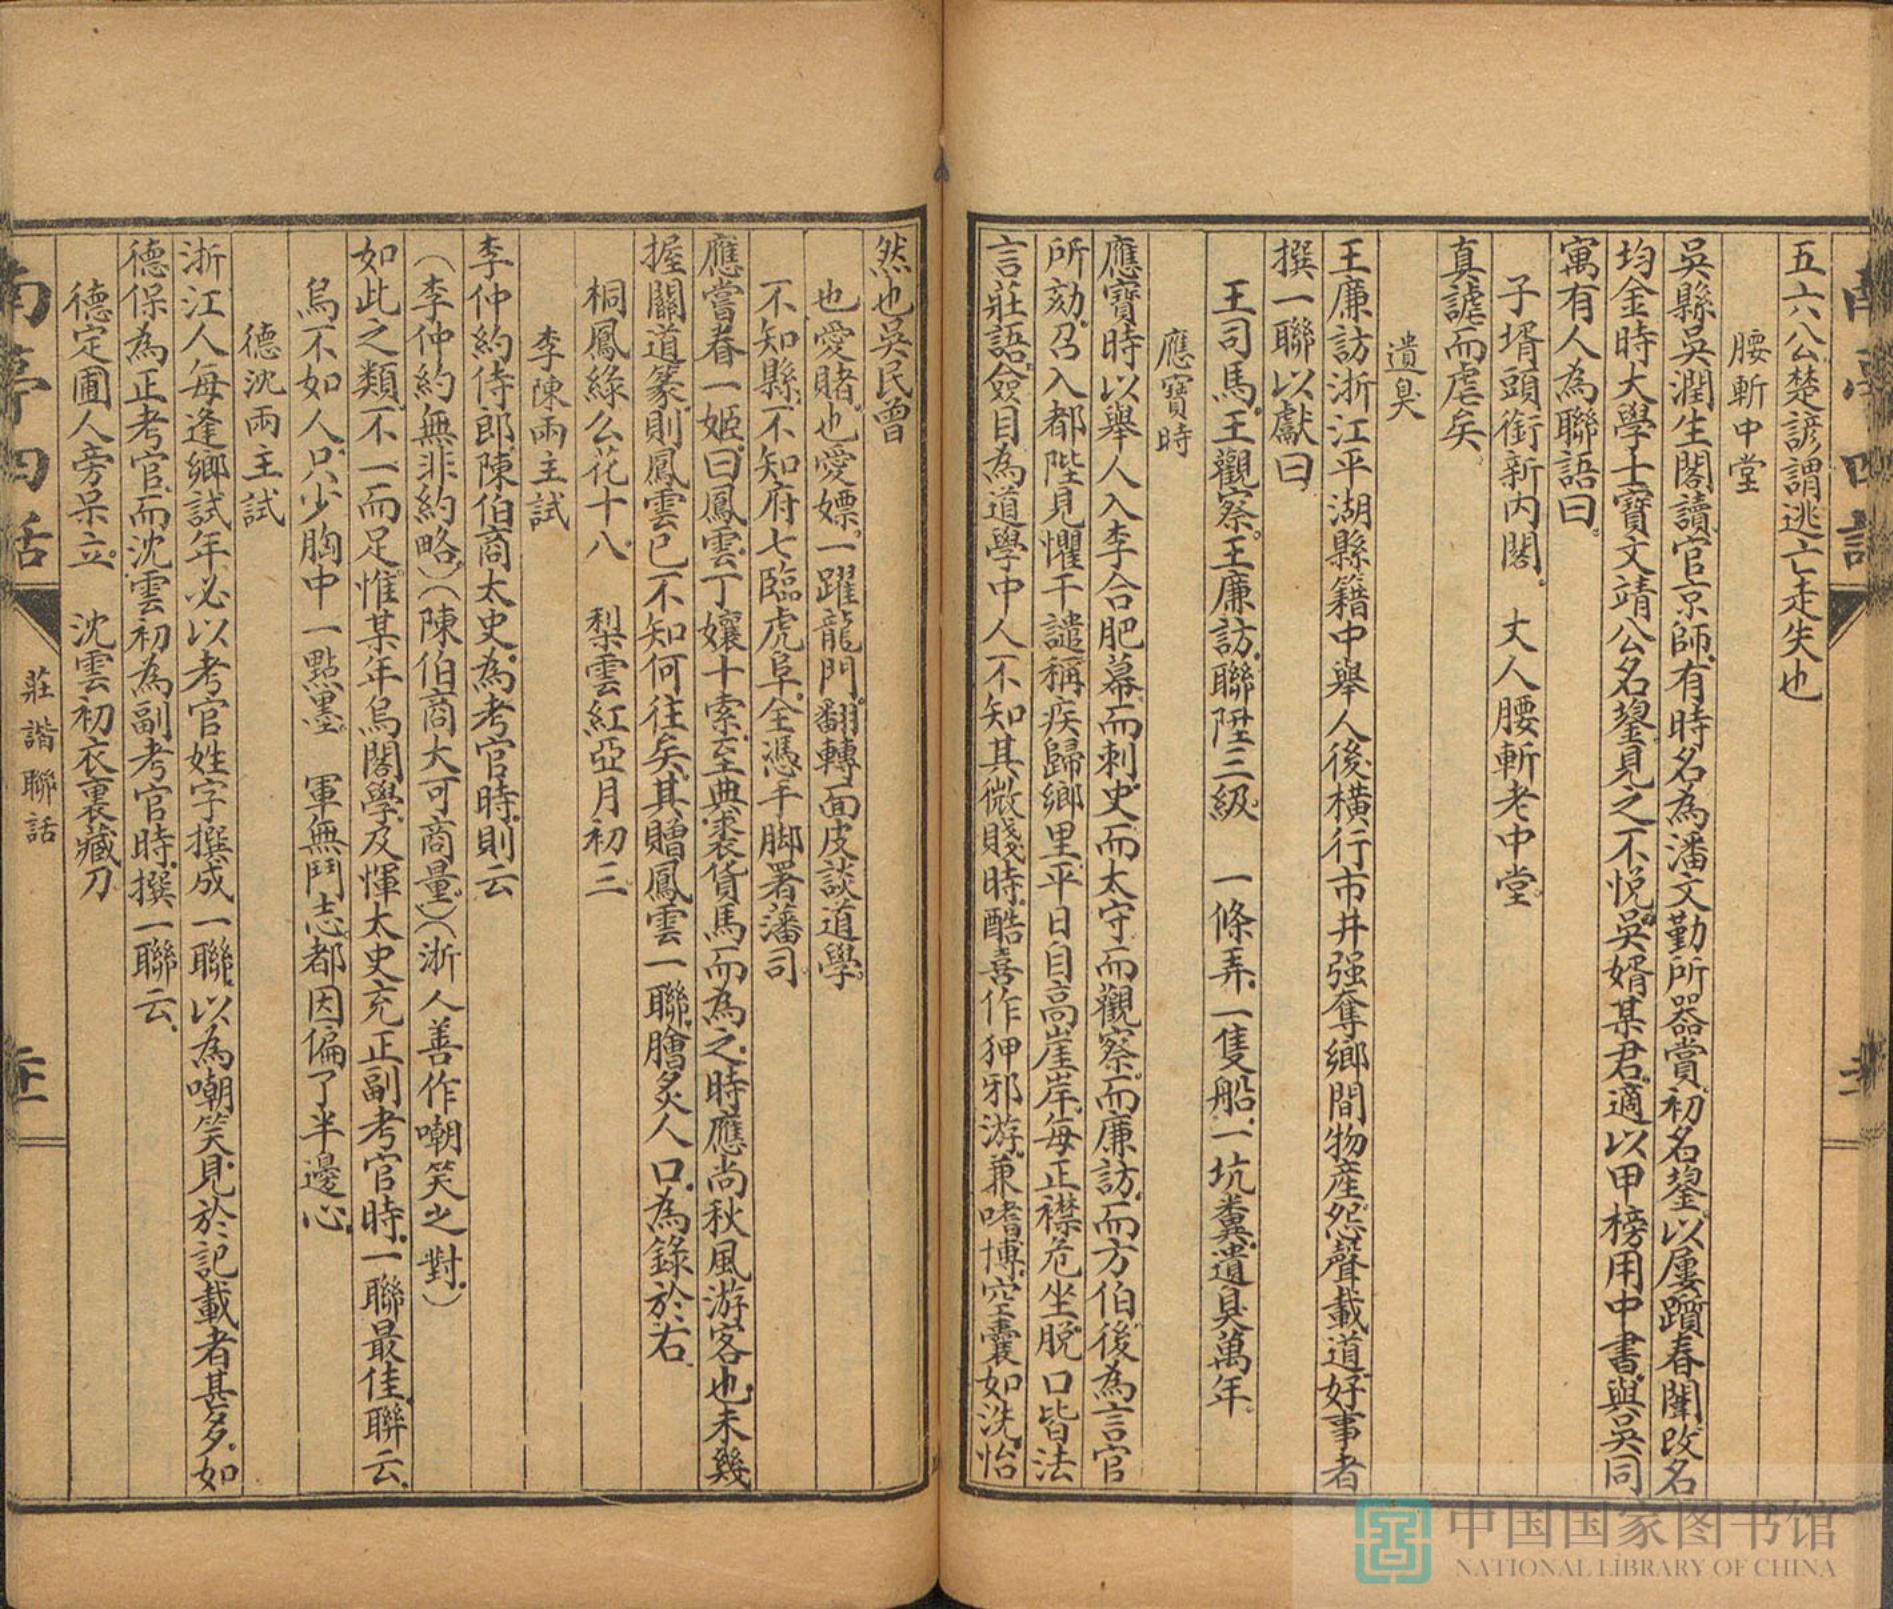 五六八公楚諺謂逃亡走失也
腰斬中堂
吳縣吳潤生閣讀官京師有時名為潘文勤所器賞初名鋆以屢躓春闈改名
均金時大學士寶文靖公名鋆見之不悅吳婿某君適以甲榜用中書與吳同
寓有人為聯語曰
子壻頭銜新內閣 丈人腰斬老中堂
真謔而虐矣
遺臭
王廉訪浙江平湖縣籍中舉人後橫行市井强奪鄉間物產怨聲載道好事者
撰一聯以獻曰
王司馬王觀察王廉訪聯陞三級 一條弄一隻船一坑糞遺臭萬年
應寶時
應寶時以舉人入李合肥幕而刺史而太守而觀察而廉訪而方伯後為言官
所劾召入都陛見懼干譴稱疾歸鄉里平日自高崖岸每正襟危坐脫口皆法
言莊語僉目為道學中人不知其微賤時酷喜作狎邪游兼嗜博空囊如洗怡
然也吳民曾
也愛賭也愛嫖一躍龍門翻轉面皮談道學
不知縣不知府七臨虎阜全憑手脚署藩司
應嘗眷一姬曰鳳雲丁孃十索至典裘貨馬而為之時應尚秋風游客也未幾
握關道篆則鳳雲已不知何往矣其贈鳳雲一聯膾炙人口為錄於右
桐鳳綠么花十八 梨雲紅亞月初三
李陳兩主試
李仲約侍郎陳伯商太史為考官時則云
（李仲約無非約略）（陳伯商大可商量）（浙人善作嘲笑之對）
如此之類不一而足惟某年烏閣學及惲太史充正副考官時一聯最佳聯云
烏不如人只少胸中一點墨 軍無鬥志都因偏了半邊心
德沈兩主試
浙江人每逢鄉試年必以考官姓字撰成一聯以為嘲笑見於記載者甚多如
德保為正考官而沈雲初為副考官時撰一聯云
德定圃人旁呆立 沈雲初衣裏藏刀
南亭四話
莊諧聯話
中国国家图书馆
NATIONAL LIBRARY OF CHINA